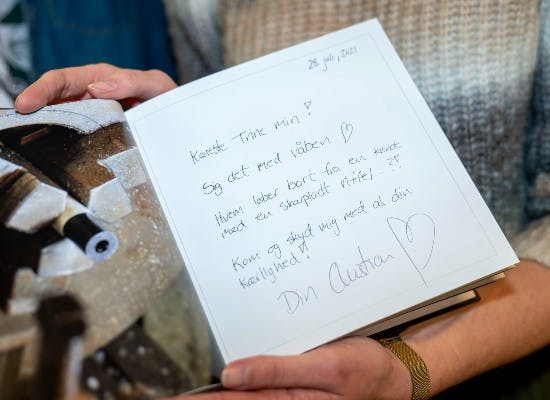 28 juli, 2021
Kæreste Trine min!
Sig det med våben ♡
Hvem løber bort fra en kvinde
med en skarpladt riffel...?!
Kom og skyd mig med al din
kærlighed!
Din